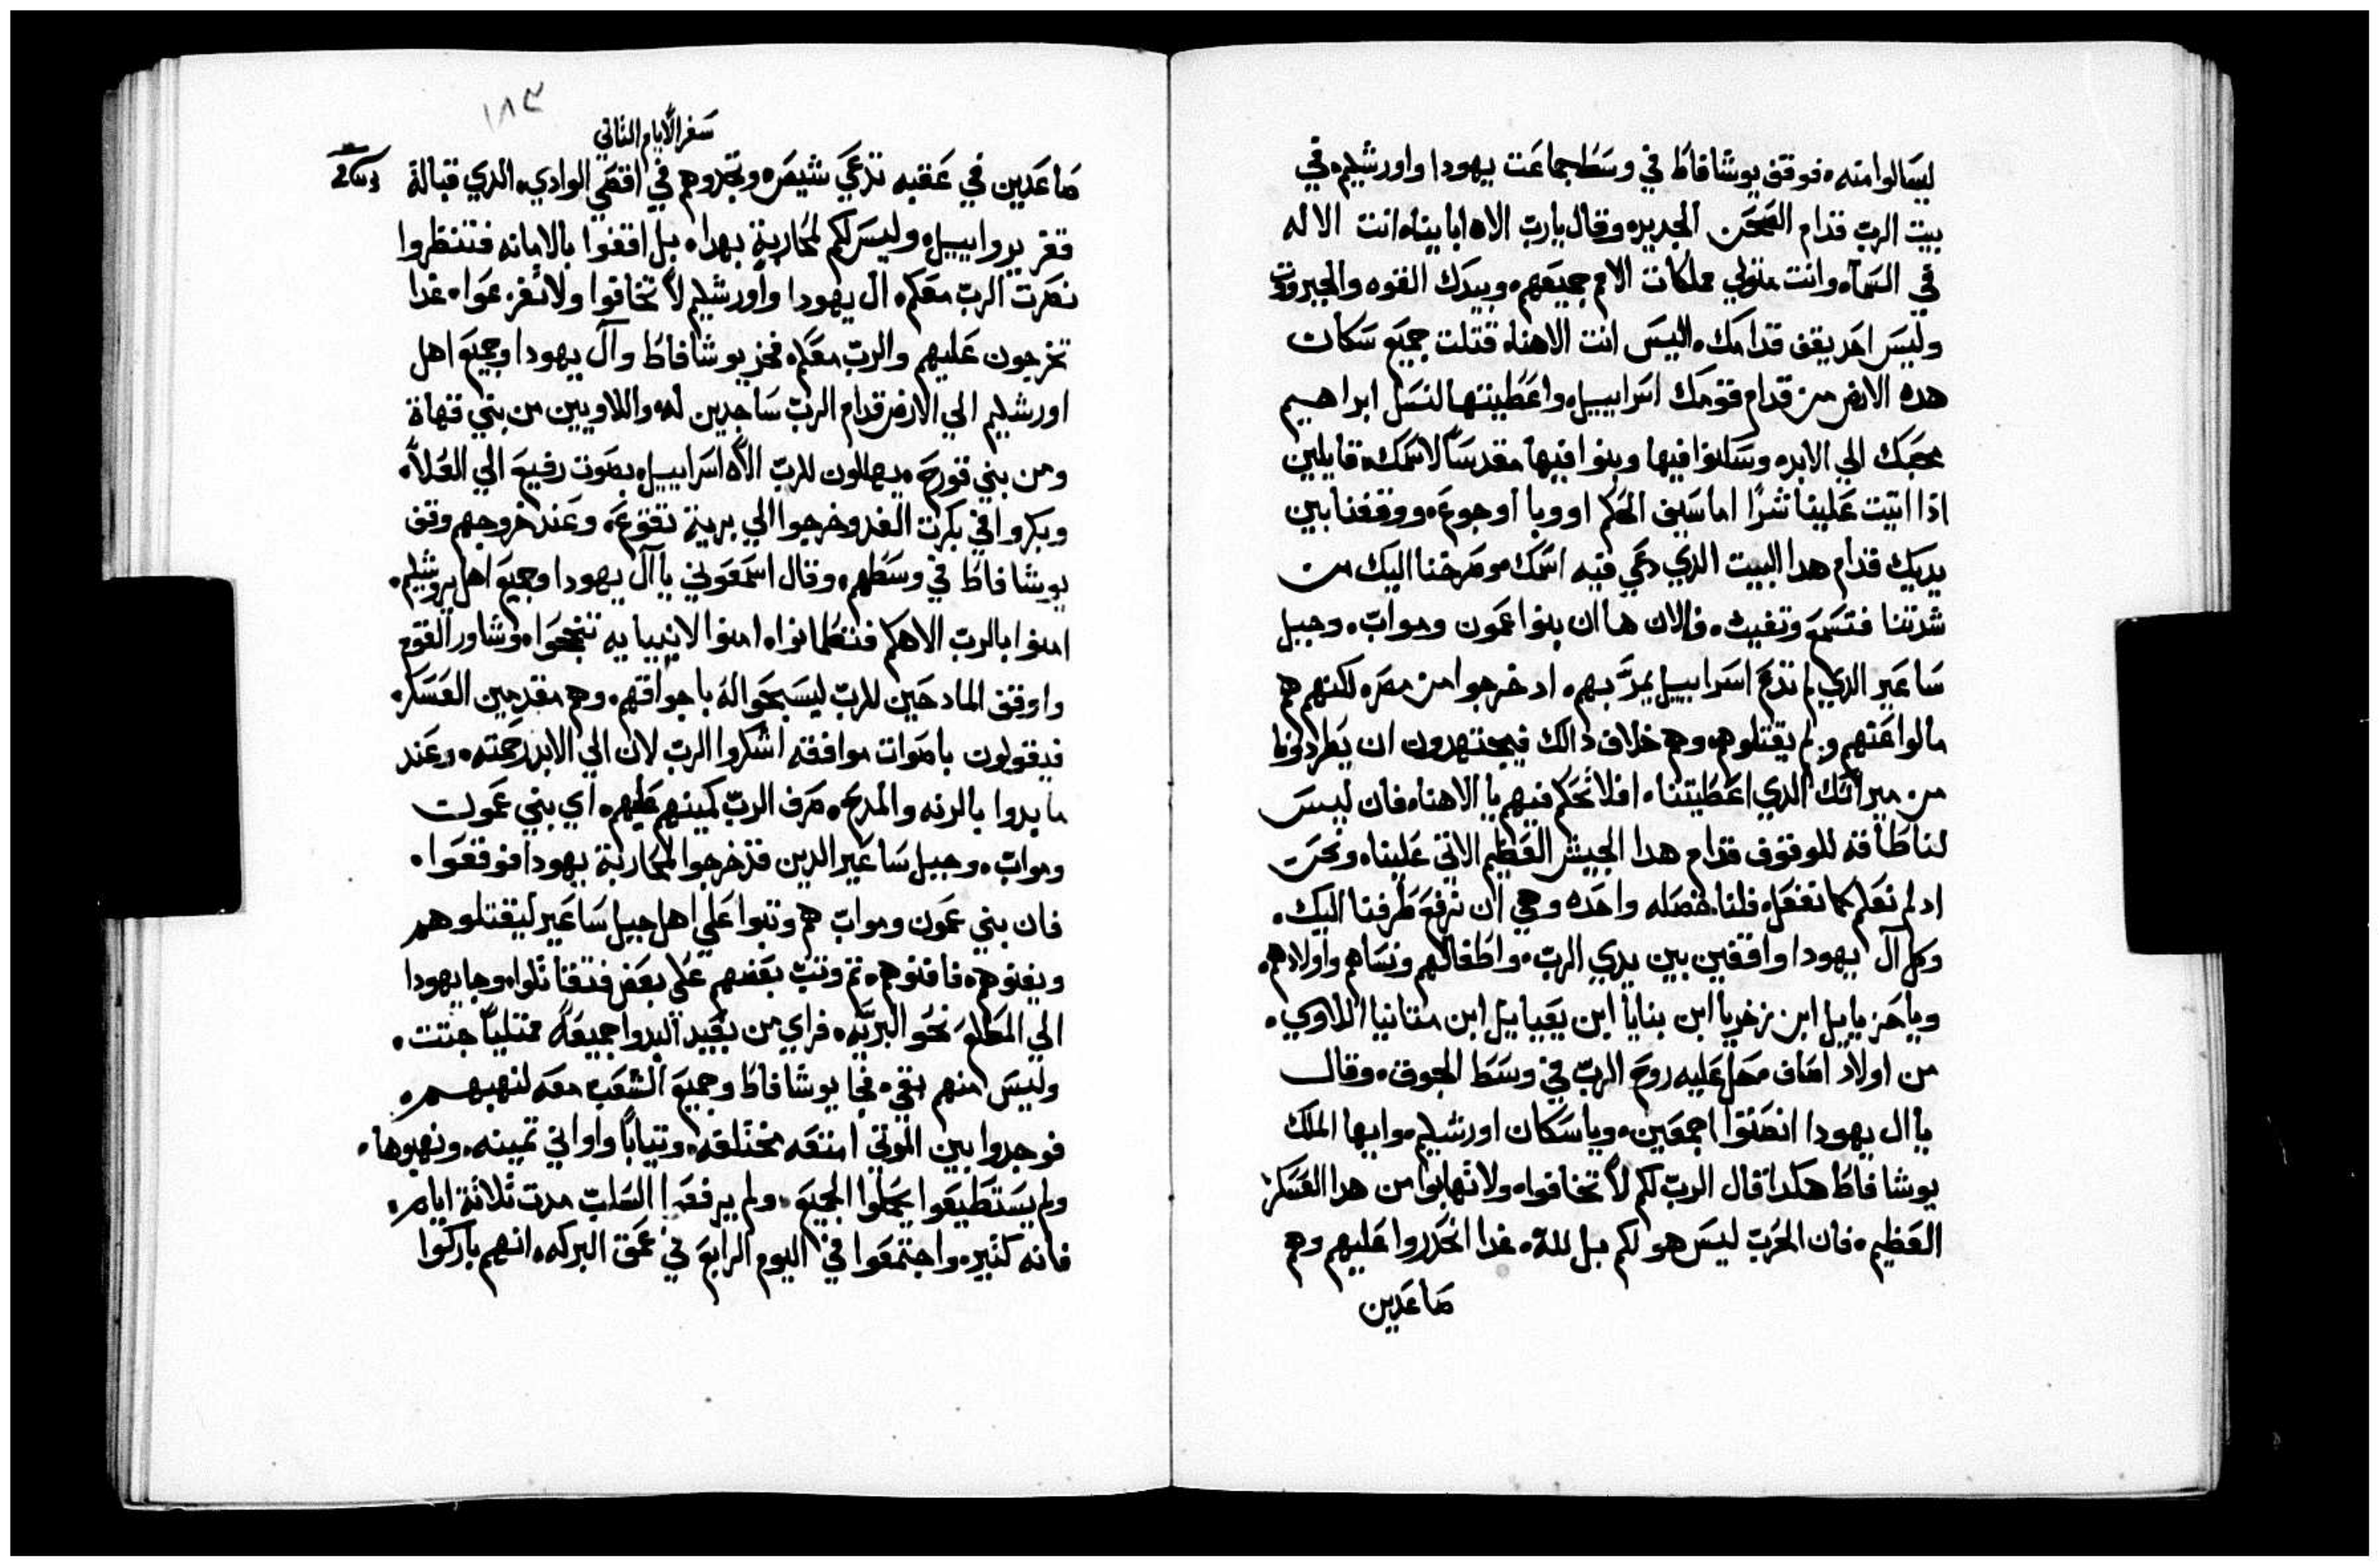 ليسالوا منه. فوقف يوشافاط في وسط جماعت يهودا واورشليم. في
بيت الرب قدام الصحن الجديد. وقال يارب الاه اباينا. انت الاله
في السماء. وانت متولي مملكات الامم جميعهم. وبيدك القوه والجبروت
وليس احد يقف قدامك. اليس انت الاهنا. قتلت جميع سكان
هده الارض من قدام قومك اسراييل. واعطيتها لنسل ابراهيم
محبك الي الابد. وسكنوا فيها وبنوا فيها مقدسا لاسمك. قايلين
اذا اتيت علينا شرا اما سيف الحكم او وبا او جوع. ووقفنا بين
يديك قدام هدا البيت الدي دعي فيه اسمك. وصرخنا اليك من
شدتنا فتسمع وتغيث. فالان ها ان بنوا عمون ومواب. وجبل
ساعير الدي لم تدع اسراييل يمر بهم. اد خرجوا من مصر. لكنهم هم
مالوا عنهم ولم يقتلوهم. وهم خلاف دالك فيجتهدون ان يطردونا
من ميراثك الدي اعطيتنا. افلا تحكم فيهم يا الاهنا. فان ليس
لنا طاقه للوقوف قدام هدا الجيش العظيم الاتي علينا. ونحن
اد لم نعلم كما نفعل. فلنا خصله واحده وهي ان نرفع طرفنا اليك.
وكل آل يهودا واقفين بين يدي الرب. واطفالهم ونساهم واولادهم.
وياحزياييل ابن زخريا ابن بنايا ابن يعياييل ابن متانيا اللاوي.
من اولاد اصاف محل عليه روح الرب في وسط الجوق. وقال
يا ال يهودا انصتوا اجمعين. ويا سكان اورشليم. وايها الملك
يوشافاط هكدا قال الرب لكم لا تخافوا. ولا تهابوا من هدا العسكر
العظيم. فان الحرب ليس هو لكم بل لله. غدا انحدروا عليهم وهم
صاعدين
١٨٣
سفر الايام الثاني
صاعدين في عقبه تدعي شيص. وتجدوهم في اقصي الوادي. الدي قبالة
قفر يرواييل. وليس لكم لمحاربة بهدا. بل اقفوا بالامانه فتنظروا
نصرت الرب معكم. ال يهودا واورشليم لا تخافوا ولا تفزعوا. غدا
تخرجون عليهم والرب معكم. فخر يوشافاط وآل يهودا وجميع اهل
اورشليم الي الارض قدام الرب ساجدين له. واللاويين من بني قهاة
ومن بني قورح. يهللون للرب الاه اسراييل. بصوت رفيع الي العلا.
وبكروا في بكرت الغد وخرجوا الي برية تقوع. وعند خروجهم وقف
يوشافاط في وسطهم. وقال اسمعوني يا آل يهودا وجميع اهل يروشليم.
امنوا بالرب الاهكم فتطمانوا. امنوا لانبيايه تنجحوا. وشاور القوم
واوقف المادحين للرب ليسبحوا له باجواقهم. وهم مقدمين العسكر.
فيقولون باصوات موافقه اشكروا الرب لان الي الابد رحمته. وعند
ما بدوا بالرنه والمدح. صرف الرب كمينهم عليهم. اي بني عمون
ومواب. وجبل ساعير الدين قد خرجوا لمحاربة يهودا فوقعوا.
فان بني عمون ومواب هم وتبوا علي اهل جبل ساعير ليقتلوهم
ويفنوهم. فافنوهم. تم وتب بعضهم علي بعض فتقاتلوا. وجا يهودا
الي المطلع نحو البريه. فراي من بعيد البدوا جميعه ممتليا جتت.
وليس منهم بقي. فجا يوشافاط وجميع الشعب معه لنهبهم.
فوجدوا بين الموتي امتعه مختلفه. وتيابا واواني تمينه. ونهبوها.
ولم يستطيعوا يحملوا الجميع. ولم يرفعوا السلب مدت ثلاثة ايام.
فانه كتير. واجتمعوا في اليوم الرابع في عمق البركه. انهم باركوا